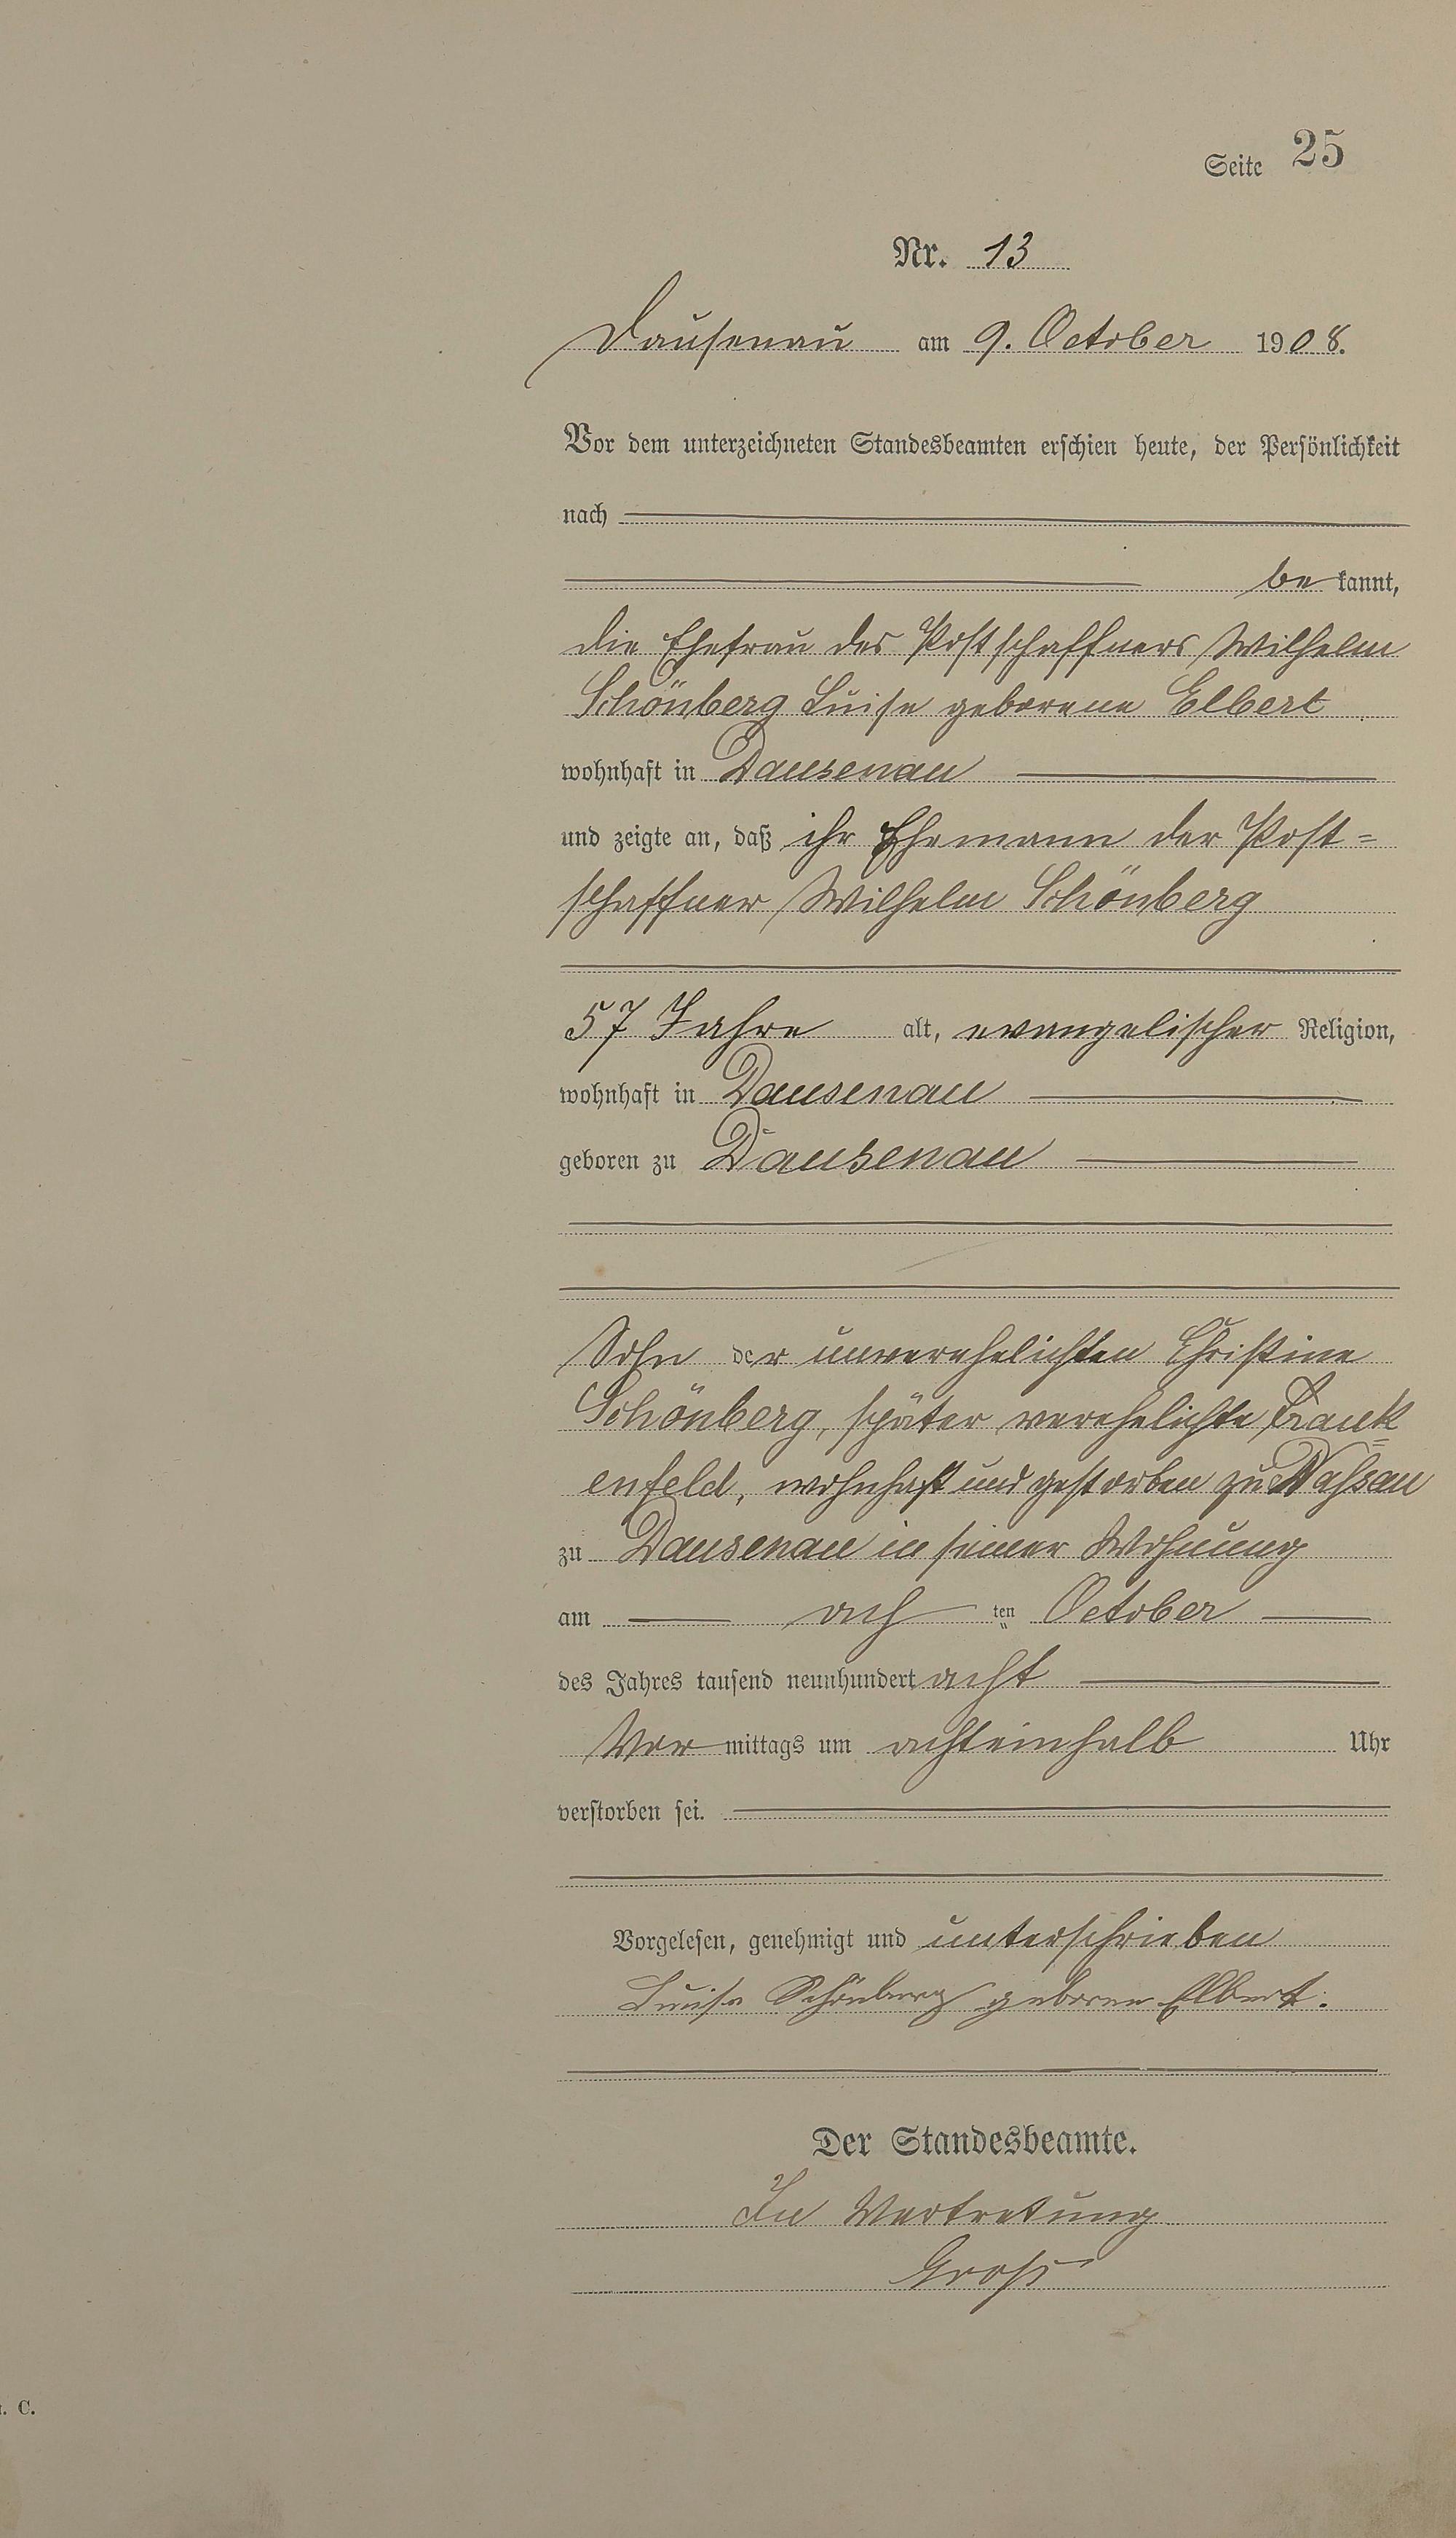 Seite 25
Nr. 13
Dausenau am 9. October 1908.
Vor dem unterzeichneten Standesbeamten erschien heute, der Persönlichkeit
nach
be kannt,
die Ehefrau des Postschaffners Wilhelm
Schönberg Luise geborene Elbert
wohnhaft in Dausenau
und zeigte an, daß ihr Ehemann der Post=
schaffner Wilhelm Schönberg
57 Jahre alt, evangelischer Religion,
wohnhaft in Dausenau
geboren zu Dausenau
Sohn der unverehelichten Christine
Schönberg, später verehelichte Frank=
enfeld, wohnhaft und gestorben zu Nassau
zu Dausenau in seiner Wohnung
am ach ten October
des Jahres tausend neunhundert acht
Vor mittags um achteinhalb Uhr
verstorben sei.
Vorgelesen, genehmigt und unterschrieben
Luise Schönberg geborne Elbert.
Der Standesbeamte.
In Vertretung
Groß
C.